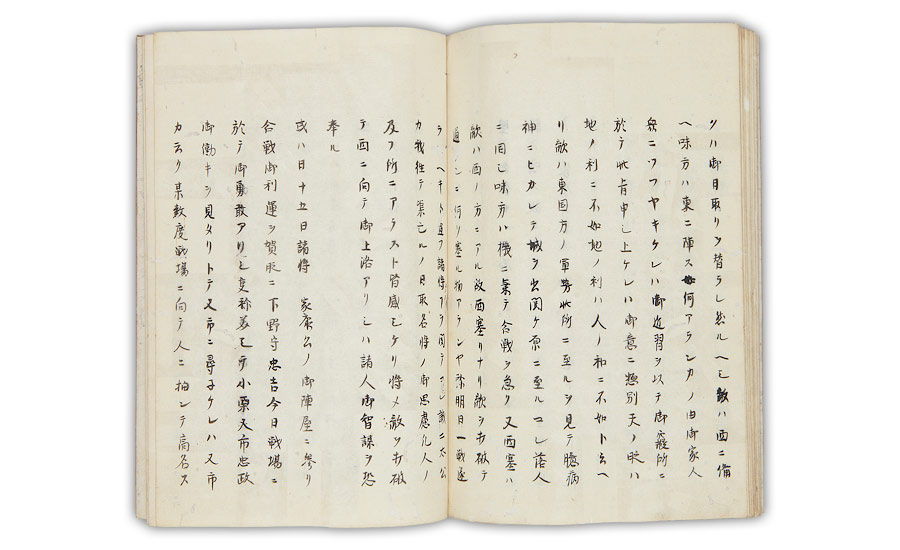 クハ御目取リヲ替ラレ然ルヘシ敵ハ西ニ備
ヘ味方ハ東ニ陣ス如何アランカノ由御家人
衆ニツフヤキケレハ御近習ヲ以テ御寝所ニ
於テ此旨申シ上ケレハ御意ニ惣別天ノ時ハ
地ノ利ニ不如地ノ利ハ人ノ和ニ不如ト云ヘ
リ敵ハ東国方ノ軍勢此所ニ至ルヲ見テ臆病
神ニヒカレテ城ヲ出関ケ原ニ至ルコレ落人
ニ同シ味方ハ機ニ乗テ合戦ヲ急ク又西塞ハ
敵ハ西ノ方ニアル故西塞リナリ敵ヲ打破テ
ニ何ノ塞ル物アランヤ弥明日一戦遂
ヘキト諸将太公
カ我往テ亡ルノ日取名将ノ御思慮凡人ノ
及フ所ニアラスト皆感シケリ将又敵ヲ打破
テ西ニ向テ御上洛アリシハ諸人御智謀ヲ恐
奉ル
或ハ日十五日諸将 家康公ノ御陣屋ニ参リ
合戦御利運ヲ賀時ニ下野守忠吉今日戦場ニ
於テ御勇敢アリシ事称美シテ小栗又市忠政
御働キヲ見タリトテ又市ニ尋子ケレハ又市
カ云ク某数度戦場ニ向テ人ニ抽ンテ高名ス